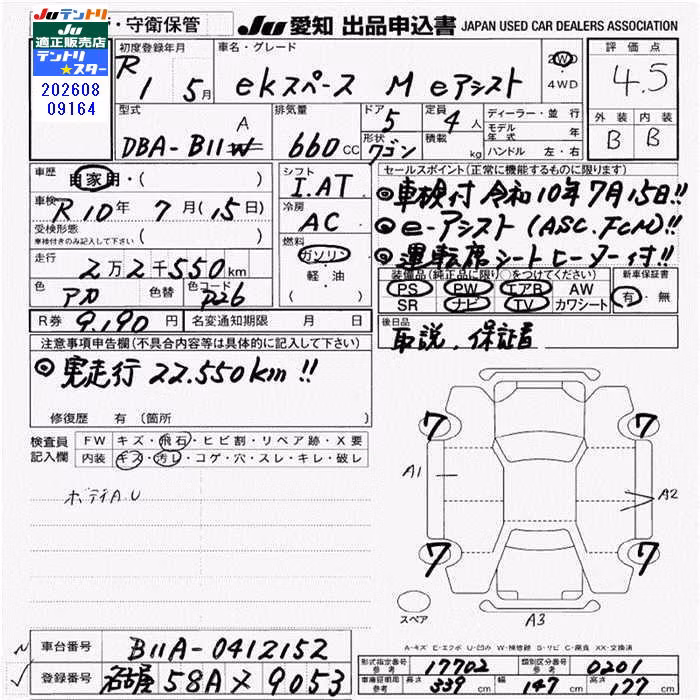 JUテントリ
JU
適正販売店
テントリ
★スター
202608
09164
・守衛保管
JU 愛知 出品申込書 JAPAN USED CAR DEALERS ASSOCIATION
初度登録年月
R 1 5月
車名・グレード
ekスペース M eアシスト
2WD
・
4WD
評価点
4.5
外装 内装
B B
型式
DBA-B11W A
排気量
660cc
ドア 5
形状 ワゴン
定員 4人
積載 kg
ディーラー・並行
モデル年式 年
ハンドル 左・右
車歴 自家用・( )
車検 R10年 7月(15日)
受検形態
車検付きのみ記入して下さい ( )
走行
2万2千550km
色 アカ 色替 色コード P26
シフト
I.AT
冷房
AC
燃料
ガソリン
・
軽・油
セールスポイント(正常に機能するものに限ります)
◎車検付 令和10年7月15日!!
◎e-アシスト(ASC.FCM)!!
◎運転席シートヒーター付!!
装備品(純正品に限り○をつけてください)
PS PW エアB AW
SR ナビ TV カワシート
新車保証書
有・無
R券 9.190円 名変通知期限 月 日
後日品
取説、保証書
注意事項申告欄(不具合内容等は具体的に記入して下さい)
◎実走行 22.550km!!
修復歴 有(箇所 )
検査員
記入欄
FW キズ・飛石・ヒビ割・リペア跡・X要
内装 キズ・汚レ・コゲ・穴・スレ・キレ・破レ
ボデイA.U
7 7
A1 A2
7 7
スペア
A3
A-キズ E-エクボ U-凹み W-補修跡 S-サビ C-腐食 XX-交換済
車台番号 B11A-0412152
登録番号 名古屋 58A メ 9053
形式指定番号 参考 17702 類別区分番号 参考 0201
車庫証明用 参考 長さ 339cm 幅 147cm 高さ 177cm